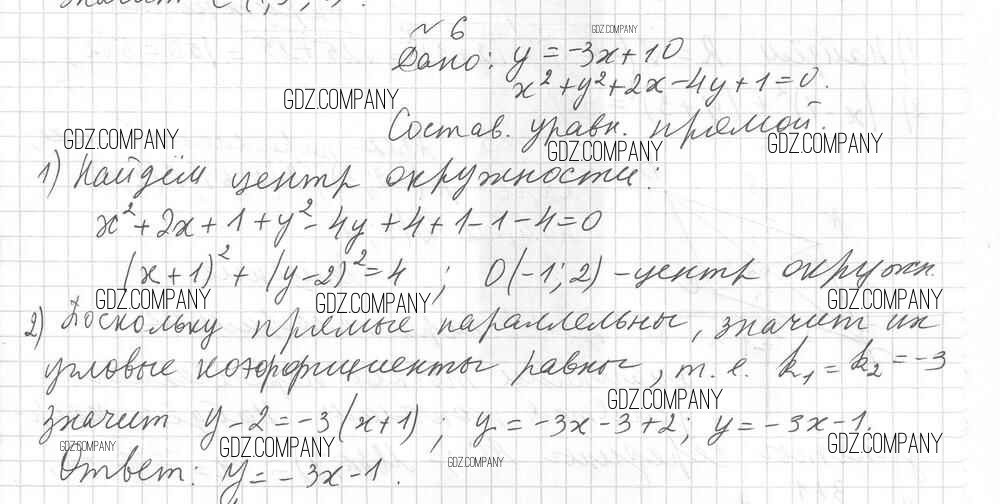 № 6
GDZ.COMPANY
Дано: y = -3x+10
x²+y²+2x-4y+1=0.
GDZ.COMPANY
Состав. уравн. прямой.
GDZ.COMPANY
GDZ.COMPANY
GDZ.COMPANY
1) Найдём центр окружности:
x²+2x+1+y²-4y+4+1-1-4=0
(x+1)²+(y-2)²=4; O(-1; 2) - центр окружн.
GDZ.COMPANY
GDZ.COMPANY
GDZ.COMPANY
2) Поскольку прямые параллельны, значит их
угловые коэффициенты равны, т. е. k₁=k₂=-3
GDZ.COMPANY
значит y-2=-3(x+1); y=-3x-3+2; y=-3x-1.
GDZ.COMPANY
GDZ.COMPANY
GDZ.COMPANY
GDZ.COMPANY
Ответ: y=-3x-1.